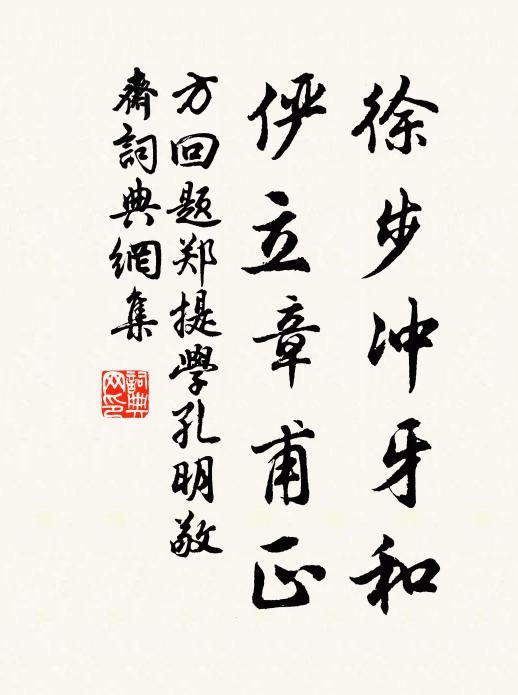 徐步冲牙和
俨立章甫正
方回题郑提学孔明敬
斋詞典網集
詞典
网印